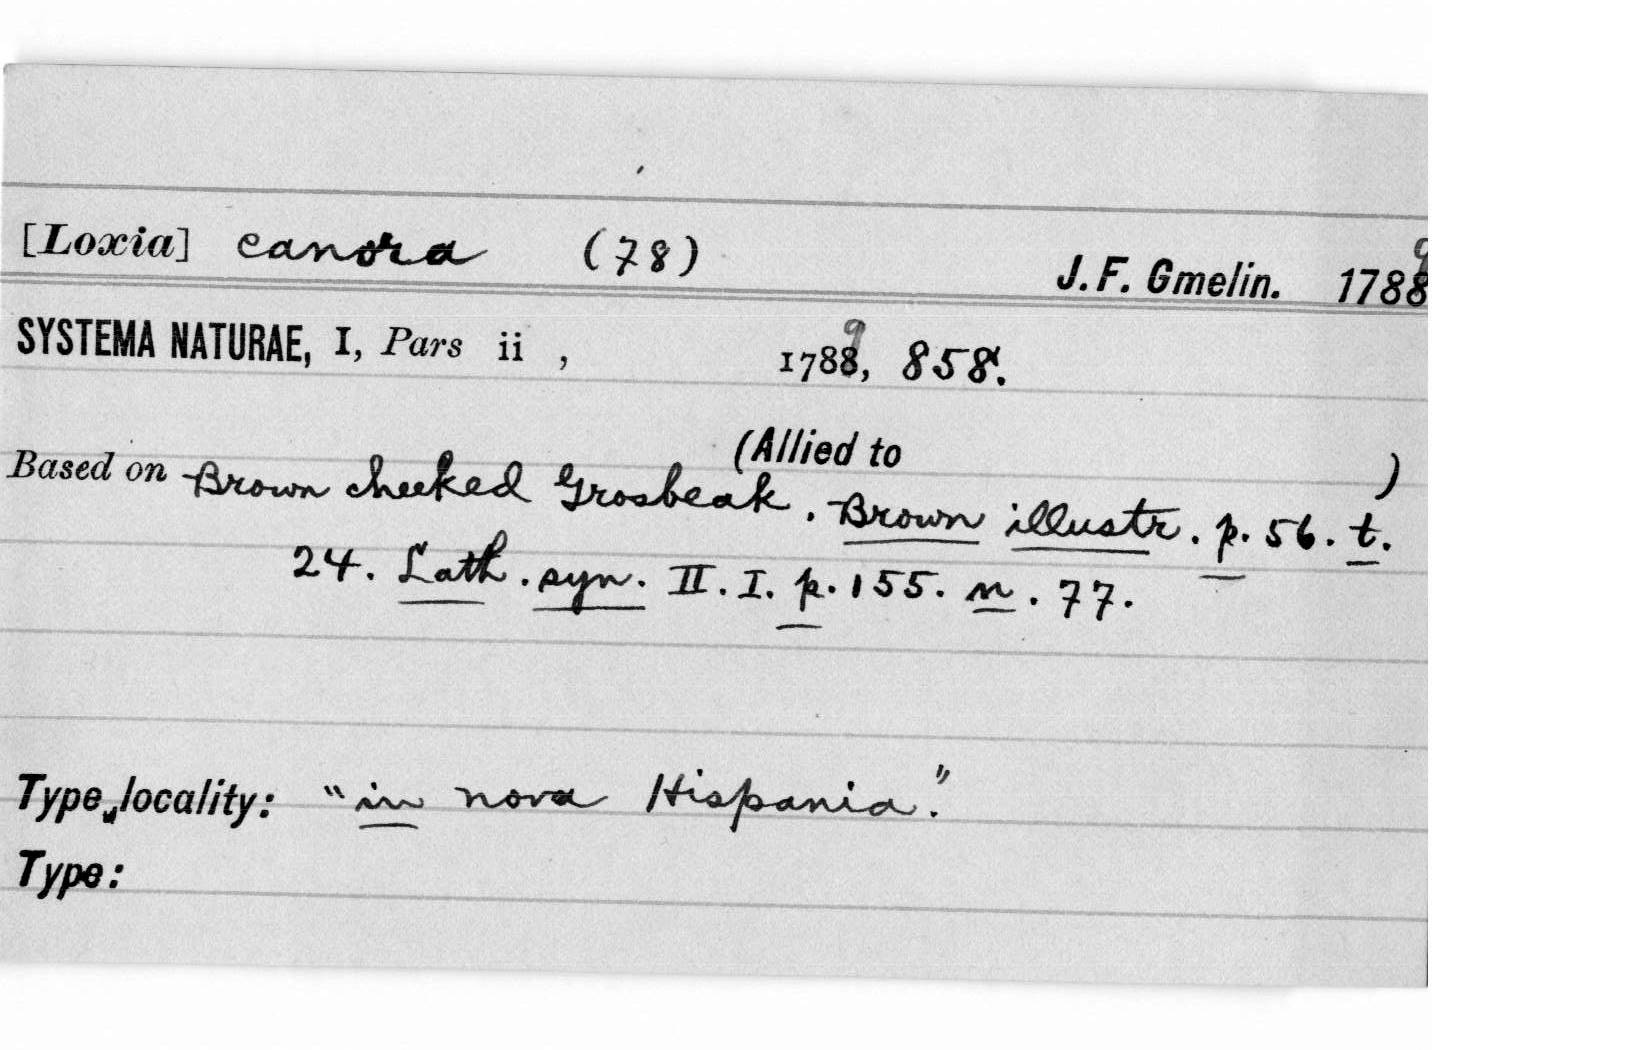 [Loxia] canora (78)
J. F. Gmelin. 1789
SYSTEMA NATURAE, I, Pars ii , 1789, 858.
(Allied to )
Based on Brown cheeked Grosbeak. Brown illustr. p. 56. t.
24. Lath. syn. II. I. p. 155. n. 77.
Type locality: "in nova Hispania."
Type: